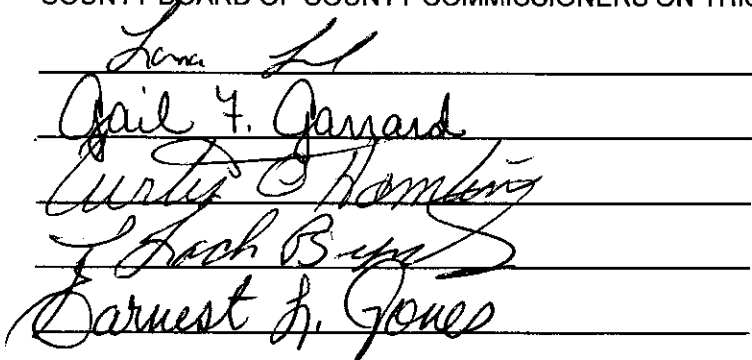 COUNTY BOARD OF COUNTY COMMISSIONERS ON THIS
Lana
Gail F. Garrard
Curtis O Hamling
Zach
Earnest L. Jones